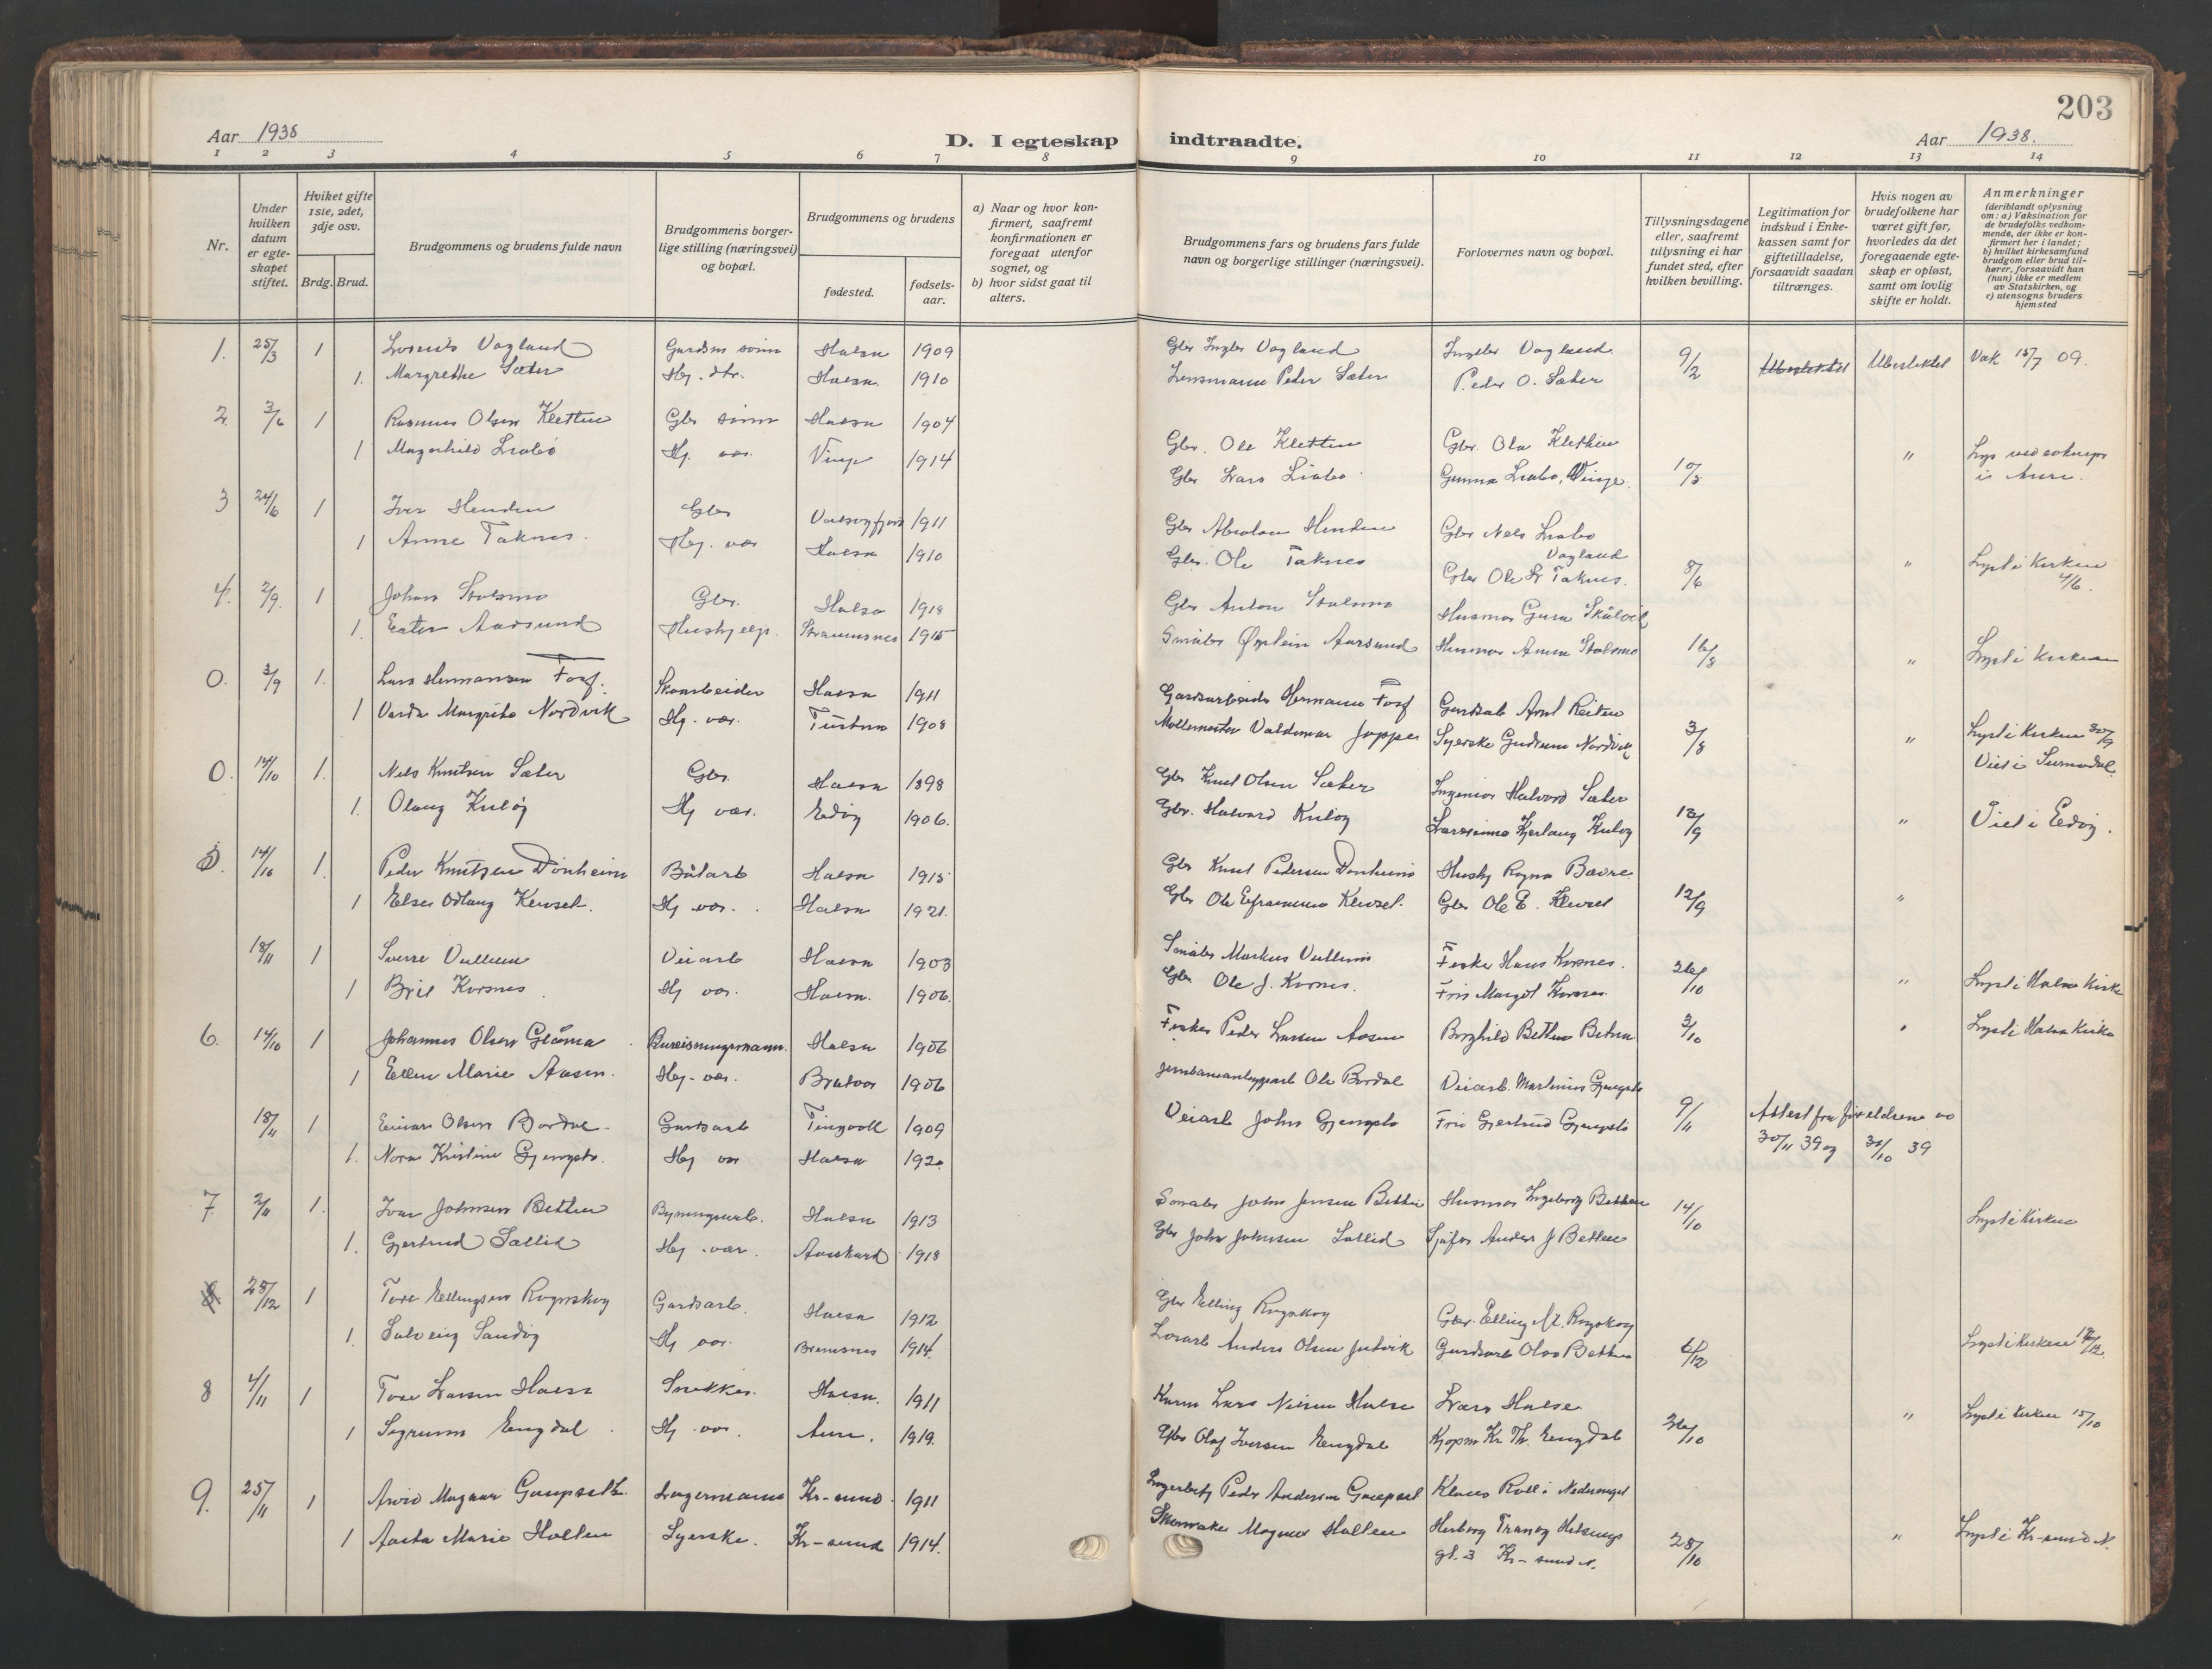 203
Aar 1938
D. I egteskap indtraadte.
Aar 1938.
1 2 3 4 5 6 7 8 9 10 11 12 13 14
Nr.
Under hvilken datum er egteskapet stiftet.
Hviket gifte 1ste, 2det, 3dje osv.
Brdg. Brud.
Brudgommens og brudens fulde navn
Brudgommens borgerlige stilling (næringsvei) og bopæl.
Brudgommens og brudens
fødested.
fødselsaar.
a) Naar og hvor konfirmert, saafremt konfirmationen er foregaat utenfor sognet, og
b) hvor sidst gaat til alters.
Brudgommens fars og brudens fars fulde navn og borgerlige stillinger (næringsvei).
Forlovernes navn og bopæl.
Tillysningsdagene eller, saafremt tillysning ei har fundet sted, efter hvilken bevilling.
Legitimation for indskud i Enkekassen samt for giftetilladelse, forsaavidt saadan tiltrænges.
Hvis nogen av brudefolkene har været gift før, hvorledes da det foregaaende egteskap er opløst, samt om lovlig skifte er holdt.
Anmerkninger (deriblandt oplysning om: a) Vaksination for de brudefolks vedkommende, der ikke er konfirmert her i landet; b) hvilket kirkesamfund brudgom eller brud tilhører, forsaavidt han (hun) ikke er medlem av Statskirken, og c) utensogns bruders hjemsted
1. 25/3 1 Lorents Vagland Gardm. sønn Halsa 1909 Gbr Ingbr Vagland Ingebr Vagland 9/2 Ubeslektet Ubeslektet Vak 15/7 09.
1. Margrethe Sæter Hj. dtr. Halsa 1910 Lensmann Peder Sæter Peder O. Sæter
2. 3/6 1 Rasmus Olsen Kletten Gbr sønn Halsa 1904 Gbr. Ole Kletten Gbr. Ola Kletten " Lys ved sokneprs
1 Magnhild Liabø Hj. vær. Vinje 1914 Gbr Lars Liabø Gunna Liabø, Vinje. i Aure.
3 24/6 1 Iver Henden Gbr Valsøyfjord 1911 Gbr Absalon Henden Gbr Nels Liabø
1 Anne Taknes. Hj. vær Halsa 1910 Gbr. Ole Taknes Gbr Ole Vagland Taknes. 8/6 " Lyst i Kirken 4/6.
4. 2/9. 1 Johan Stølsmo Gbr. Halsa 1918 Gbr Anton Stølsmo Husmor Guru Skålvik
1. Ester Aarsund Hushjelp. Straumsnes 1915 Småbr Øystein Aarsund Husmor Anna Stølsmo 16/8 " Lyst i Kirken
0. 3/9 1. Lars Hermansen Foss. Skoarbeider Halsa 1911 Gardsarbeider Hermann Foss Gardsarb Arnt Reiten
1 Varda Margrete Nordvik Hj. vær. Tustna 1908 Møllemester Valdemar Joppe Syerske Gudrun Nordvik 3/8 " Lyst i Kirken
Viet i Surnadal
0. 14/10 1. Nels Knutsen Sæter Gbr. Halsa 1898 Gbr Knut Olsen Sæter Ingeniør Halvord Sæter
1. Olaug Kuløy Hj vær. Edøy 1906. Gbr. Halvard Kuløy Lærerinne Hjerlaug Kuløy " Viet i Edøy.
5. 14/10 1. Peder Knutsen Dønheim Båtarb Halsa 1915 Gbr Knut Pedersen Dønheim Hushj Ragna Bævre.
1 Else Odlaug Klevset. Hj vær. Halsa 1921. Gbr Ole Efraimsen Klevset. Gbr Ole E. Klevset 12/9 "
18/11 1 Sverre Vullum Veiarb Halsa 1903 Småbr Markus Vullum Fisker Hans Korsnes.
1 Brit Korsnes Hj vær. Halsa. 1906. Gbr Ole J. Korsnes. Frø Margit Korsnes 26/10 " Lyst i Halsa Kirke
6. 14/10 1 Johannes Olsen Glåma Bureisningsmann. Halsa 1906 Fisker Peder Larsen Aasen Borghild Betten Betna 3/10 Lyst i Halsa Kirke
1 Ellen Marie Aasen. Hj. vær. Brattvær 1906 Jernbaneanleggsarb Ole Bordal Veiarb. Martinus Gjengstø
18/11 1 Einar Olsen Bordal Gardsarb Tingvoll 1909 Veiarb John Gjengstø Frø Gjertrud Gjengstø 9/11 Attest fra foreldrene av
1. Nora Kristine Gjengstø. Hj vær Halsa 1920 30/11 39 og 30/10 39
7. 2/11 1. Ivar Johnsen Betten Bygningsarb. Halsa 1913 Småbr John Jensen Betten Husmor Ingeborg Betten 14/10
1. Gjertrud Sællid Hj. vær. Aasskard 1918 Gbr John Johnsen Sællid Sjåfør Anders J Betten Lyst i Kirken
8 28/12 1 Tore Ellingsen Rognskog Gardsarb. Halsa 1912 Gbr Elling Rognskog Gbr. Elling M. Rognskog
1. Solveig Sandøy Hj vær. Bremsnes 1914. Anders Olsen Gardsarb Olav Betten 6/12 Lyst i Kirken
8 4/11 1 Tore Larsen Halsa Snekker. Halsa. 1911 Lars Nilsen Halse Lars Halse " Lyst i Kirken 15/10
1 Sigrunn Engdal. Hj. vær. Aure. 1919. Gbr Olaf Iversen Engdal Kjøpm Kr. Th. Engdal 26/10
9. 25/11 1 Arvid Magnar Gaupset Lagermann Kr-sund. 1911 Peder Andersen Gaupset Klaus Roll
1 Aasta Marie Holten Syerske. Kr-sund 1914. Skomaker Magnus Holten Herborg
gt. 3 Kr-sund N. 28/10 " Lyst i Kr-sund N.